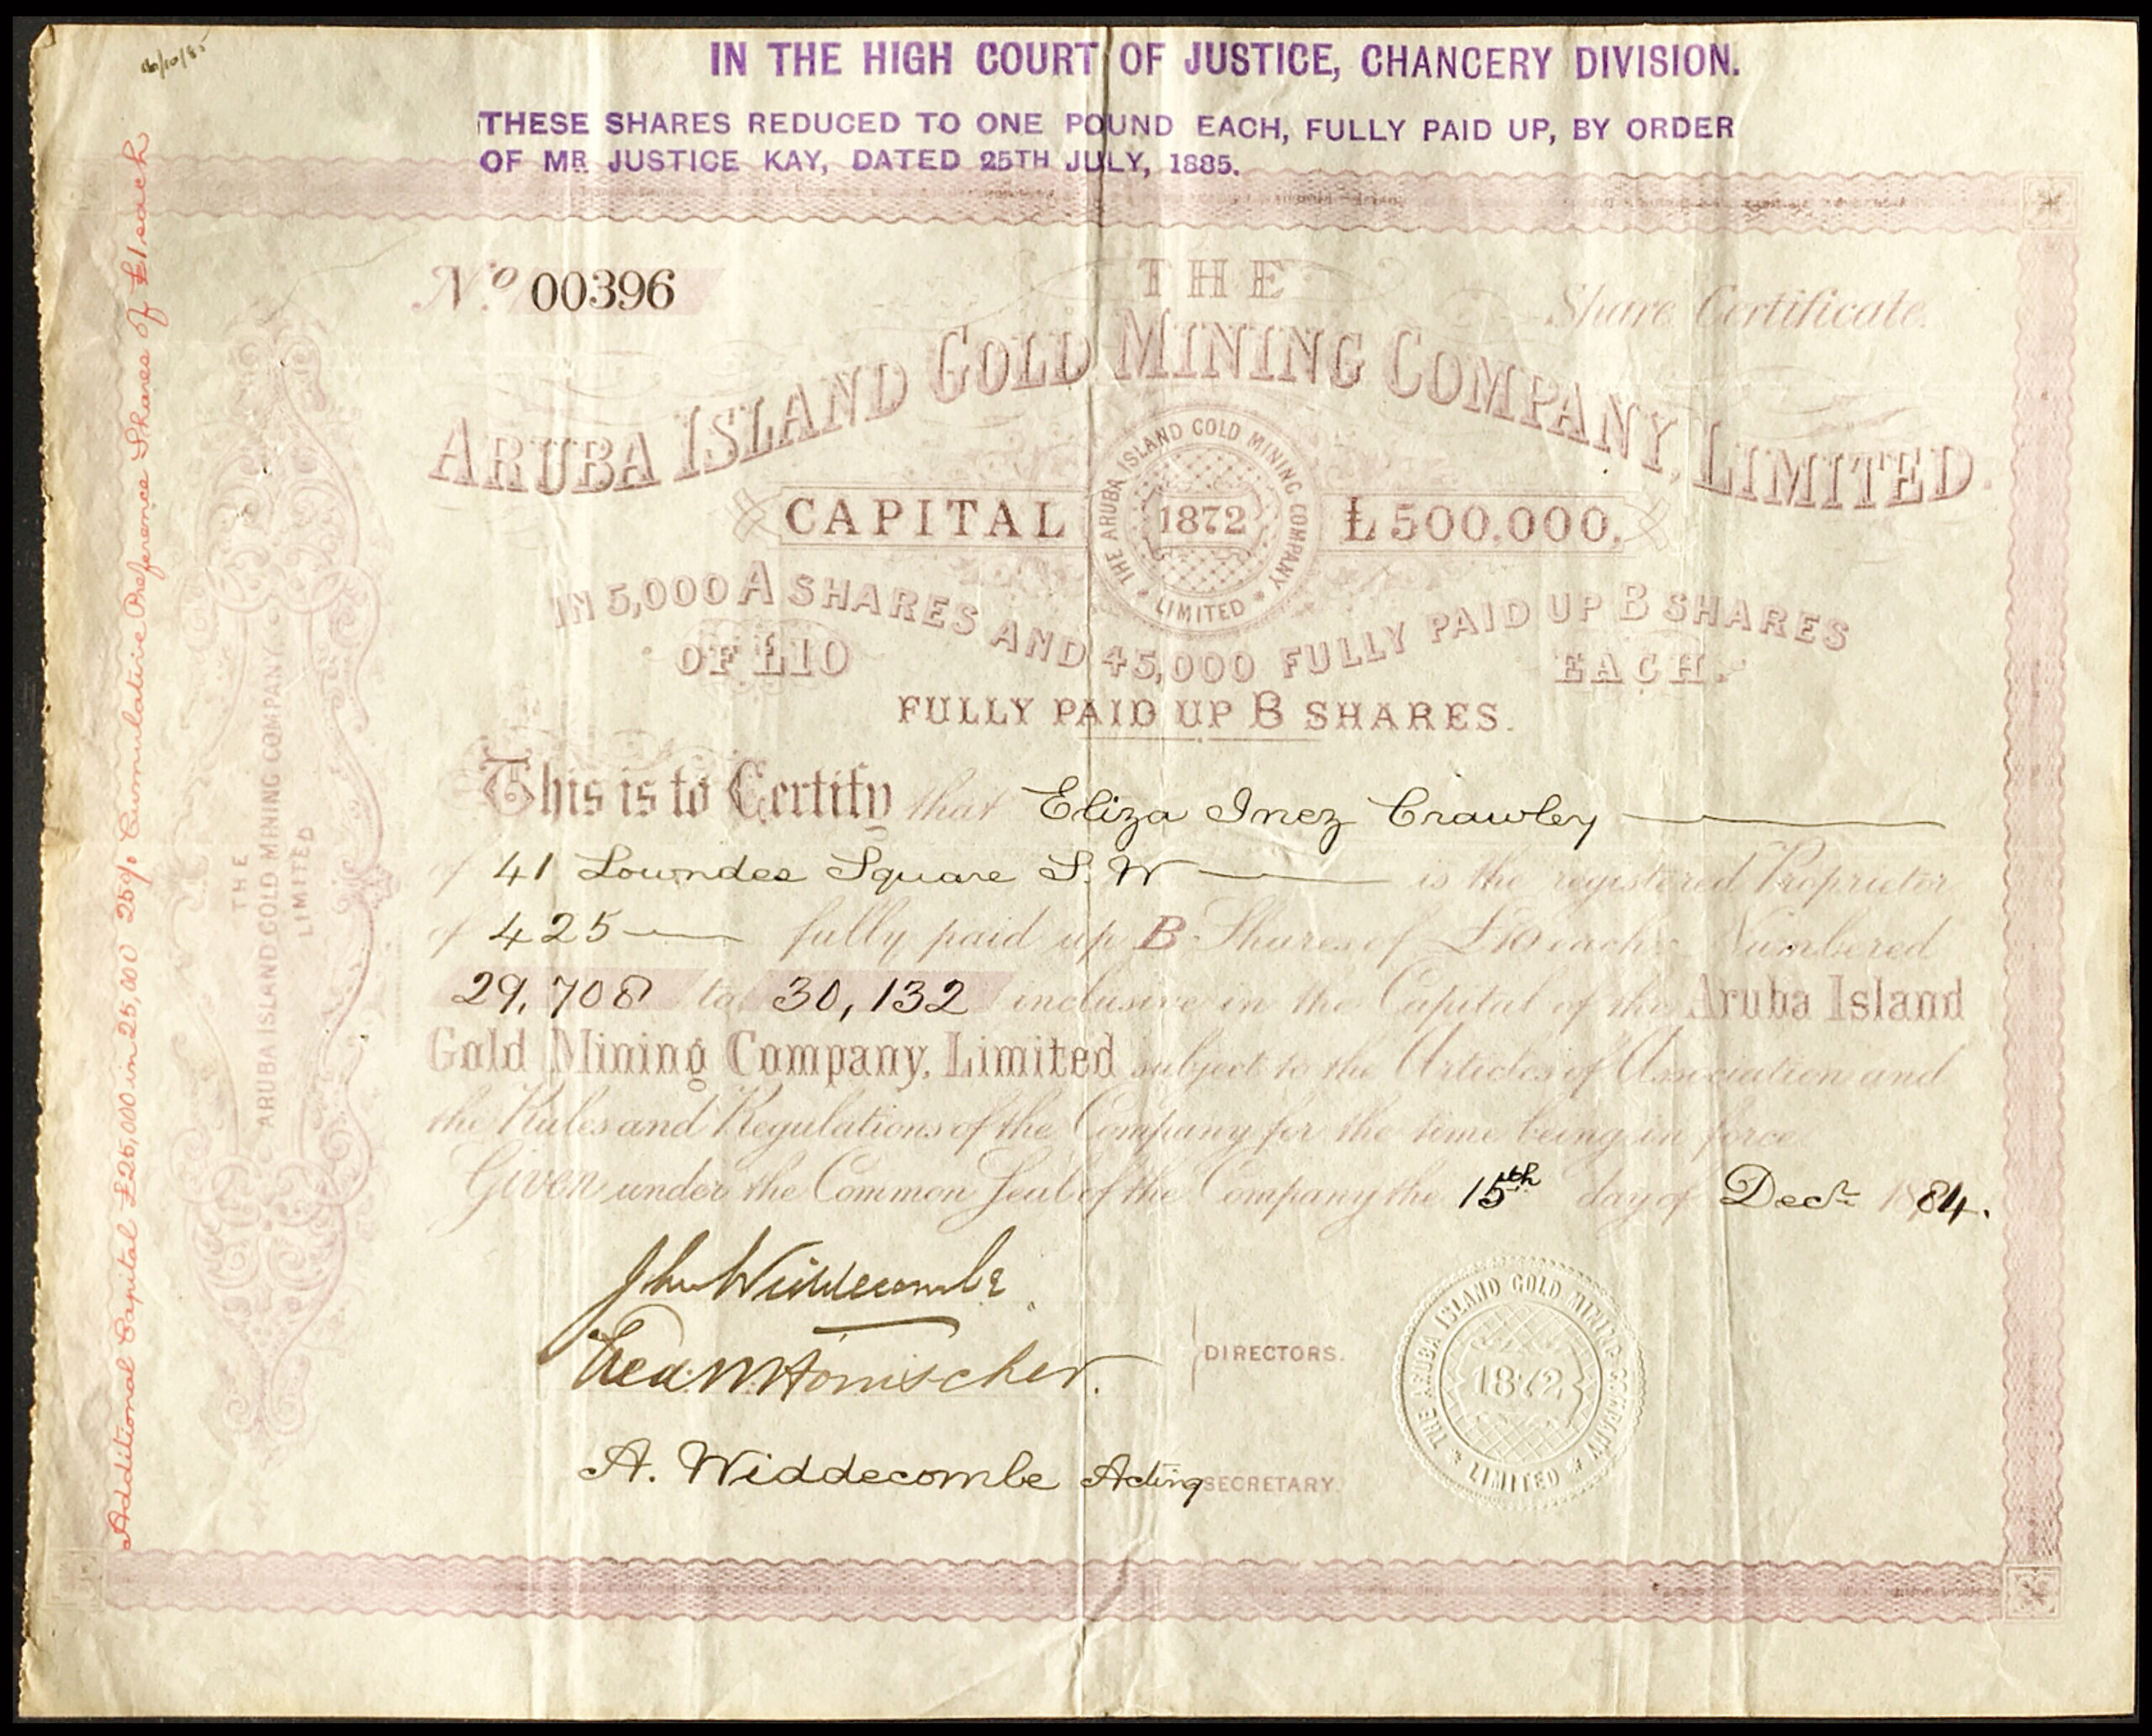 IN THE HIGH COURT OF JUSTICE, CHANCERY DIVISION.
THESE SHARES REDUCED TO ONE POUND EACH, FULLY PAID UP, BY ORDER
OF MR JUSTICE KAY, DATED 25TH JULY, 1885.
No 00396
Share Certificate.
THE
ARUBA ISLAND GOLD MINING COMPANY, LIMITED.
CAPITAL £500,000.
THE ARUBA ISLAND GOLD MINING COMPANY
1872
* LIMITED *
IN 5,000 A SHARES AND 45,000 FULLY PAID UP B SHARES
OF £10 EACH.
FULLY PAID UP B SHARES.
This is to Certify that Eliza Inez Crawley
of 41 Lowndes Square S.W is the registered Proprietor
of 425 fully paid up B Shares of £10 each Numbered
29,708 to 30,132 inclusive in the Capital of the Aruba Island
Gold Mining Company, Limited subject to the Articles of Association and
the Rules and Regulations of the Company for the time being in force
Given under the Common Seal of the Company the 15th day of Decr 1884.
Jno Widdecombe
DIRECTORS.
A. Widdecombe Acting SECRETARY.
THE ARUBA ISLAND GOLD MINING COMPANY
1872
* LIMITED *
THE
ARUBA ISLAND GOLD MINING COMPANY
LIMITED
Additional Capital £25,000 in 25,000 25% Cumulative Preference Shares of £1 each